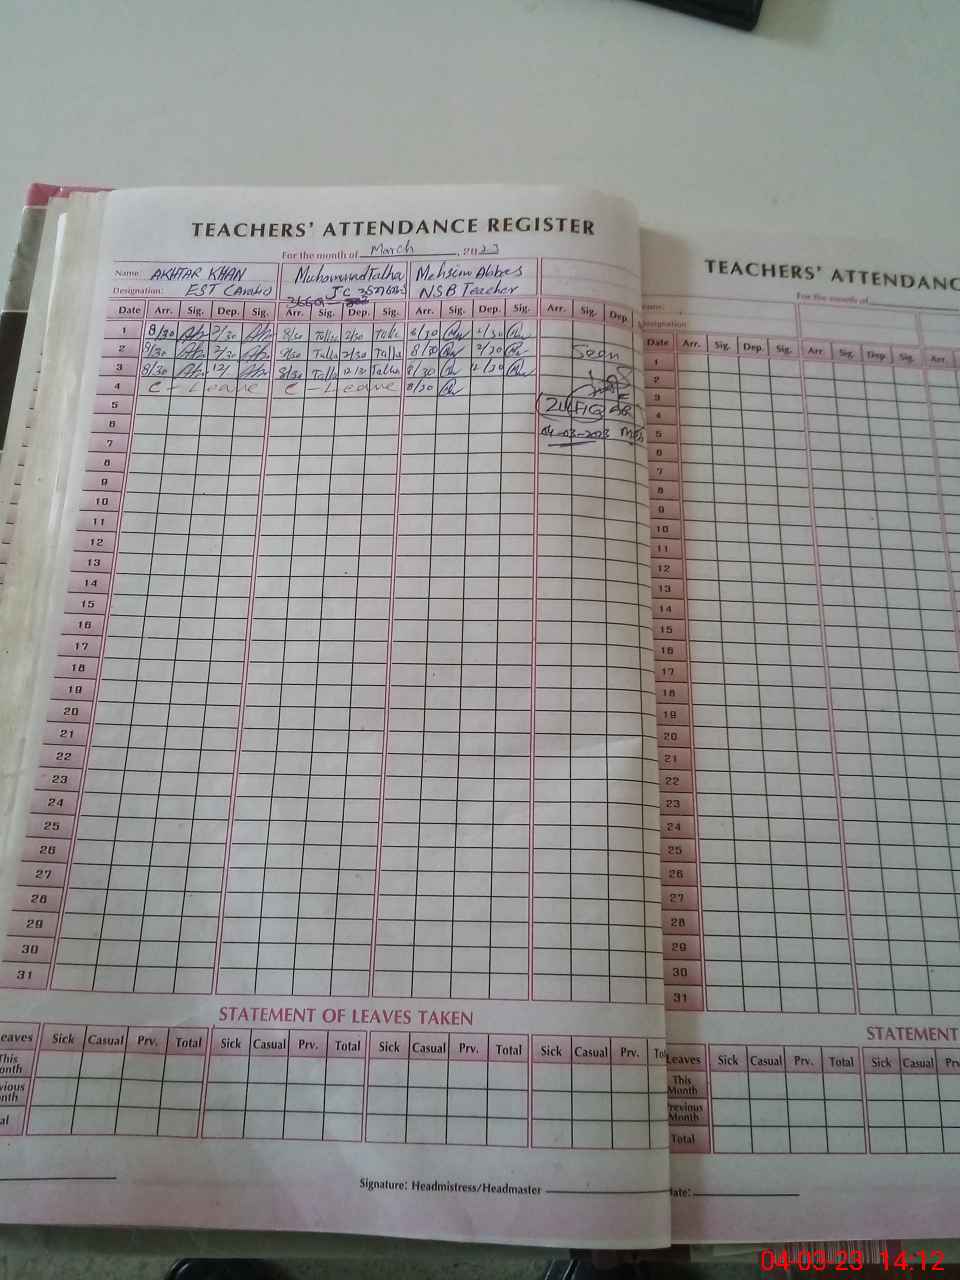 TEACHERS' ATTENDANCE REGISTER
For the month of March, 2023
Name: AKHTAR KHAN Muhammad Talha Mohsin Abbas
Designation: EST (Arabic) J C NSB Teacher
Date Arr. Sig. Dep. Sig. Arr. Sig. Dep. Sig. Arr. Sig. Dep. Sig. Arr. Sig. Dep.
1 8/30 2/30 8/30 Talha 2/30 Talha 8/30 2/30
2 8/30 2/30 8/30 Talha 2/30 Talha 8/30 2/30 Seen
3 8/30 12/ 8/30 Talha 12/30 Talha 8/30 12/30
4 C - Leave C - Leave 8/30
5 ZULFIQAR
6 04-03-2023
7
8
9
10
11
12
13
14
15
16
17
18
19
20
21
22
23
24
25
26
27
28
29
30
31
STATEMENT OF LEAVES TAKEN
Leaves Sick Casual Prv. Total Sick Casual Prv. Total Sick Casual Prv. Total Sick Casual Prv. Tot
This Month
vious
onth
al
Signature: Headmistress/Headmaster
TEACHERS' ATTENDANC
For the month of
ame:
esignation
Date Arr. Sig. Dep. Sig. Arr Sig. Dep Sig. Arr.
1
2
3
4
5
6
7
8
9
10
11
12
13
14
15
16
17
18
19
20
21
22
23
24
25
26
27
28
29
30
31
STATEMENT
Leaves Sick Casual Prv. Total Sick Casual Prv
This Month
Previous Month
Total
Date:
04 03 23 14:12